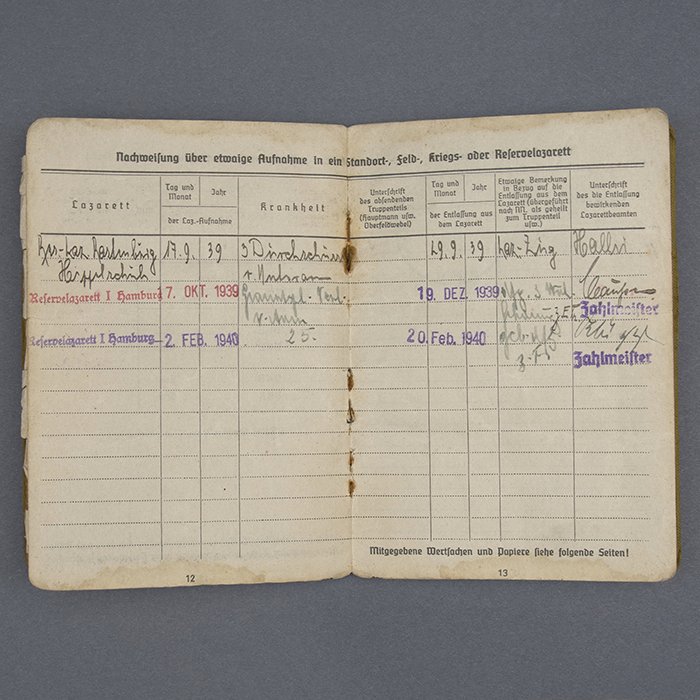 Nachweisung über etwaige Aufnahme in ein Standort-, Feld-, Kriegs- oder Reservelazarett
Lazarett
Tag und
Monat
Jahr
der Laz.-Aufnahme
Krankheit
Unterschrift
des absendenden
Truppenteils
(Hauptmann usw.
Oberfeldwebel)
Tag und
Monat
Jahr
der Entlassung aus
dem Lazarett
Etwaige Bemerkung
in Bezug auf die
Entlassung aus dem
Lazarett (übergeführt
nach N., als geheilt
zum Truppenteil
usw.)
Unterschrift
des die Entlassung
bewirkenden
Lazarettbeamten
17.9. 39 3 Durchschüsse 29.9. 39
Reservelazarett I Hamburg 17. OKT. 1939 19. DEZ. 1939
Zahlmeister
Reservelazarett I Hamburg 2. FEB. 1940 25. 20. Feb. 1940
Zahlmeister
Mitgegebene Wertsachen und Papiere siehe folgende Seiten!
12
13